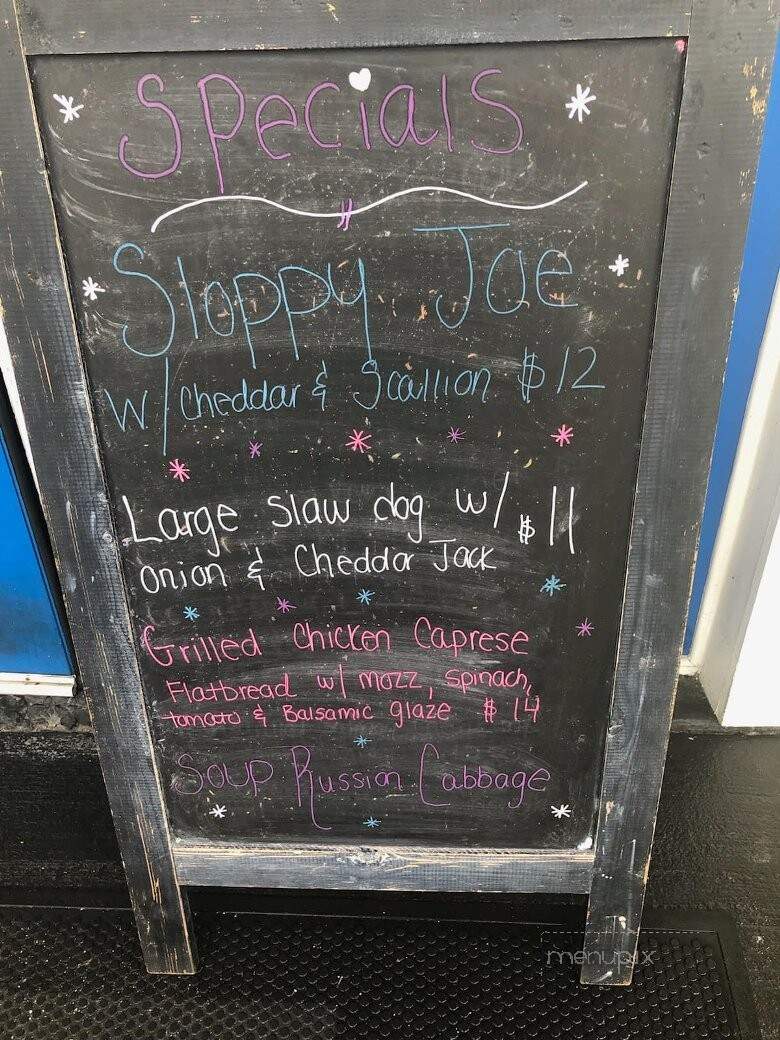 Specials
Sloppy Joe
w/ cheddar & Scallion $12
Large slaw dog w/ $11
onion & Cheddar Jack
Grilled Chicken Caprese
Flatbread w/ mozz, spinach,
tomato & Balsamic glaze $14
Soup Russian Cabbage
menupix